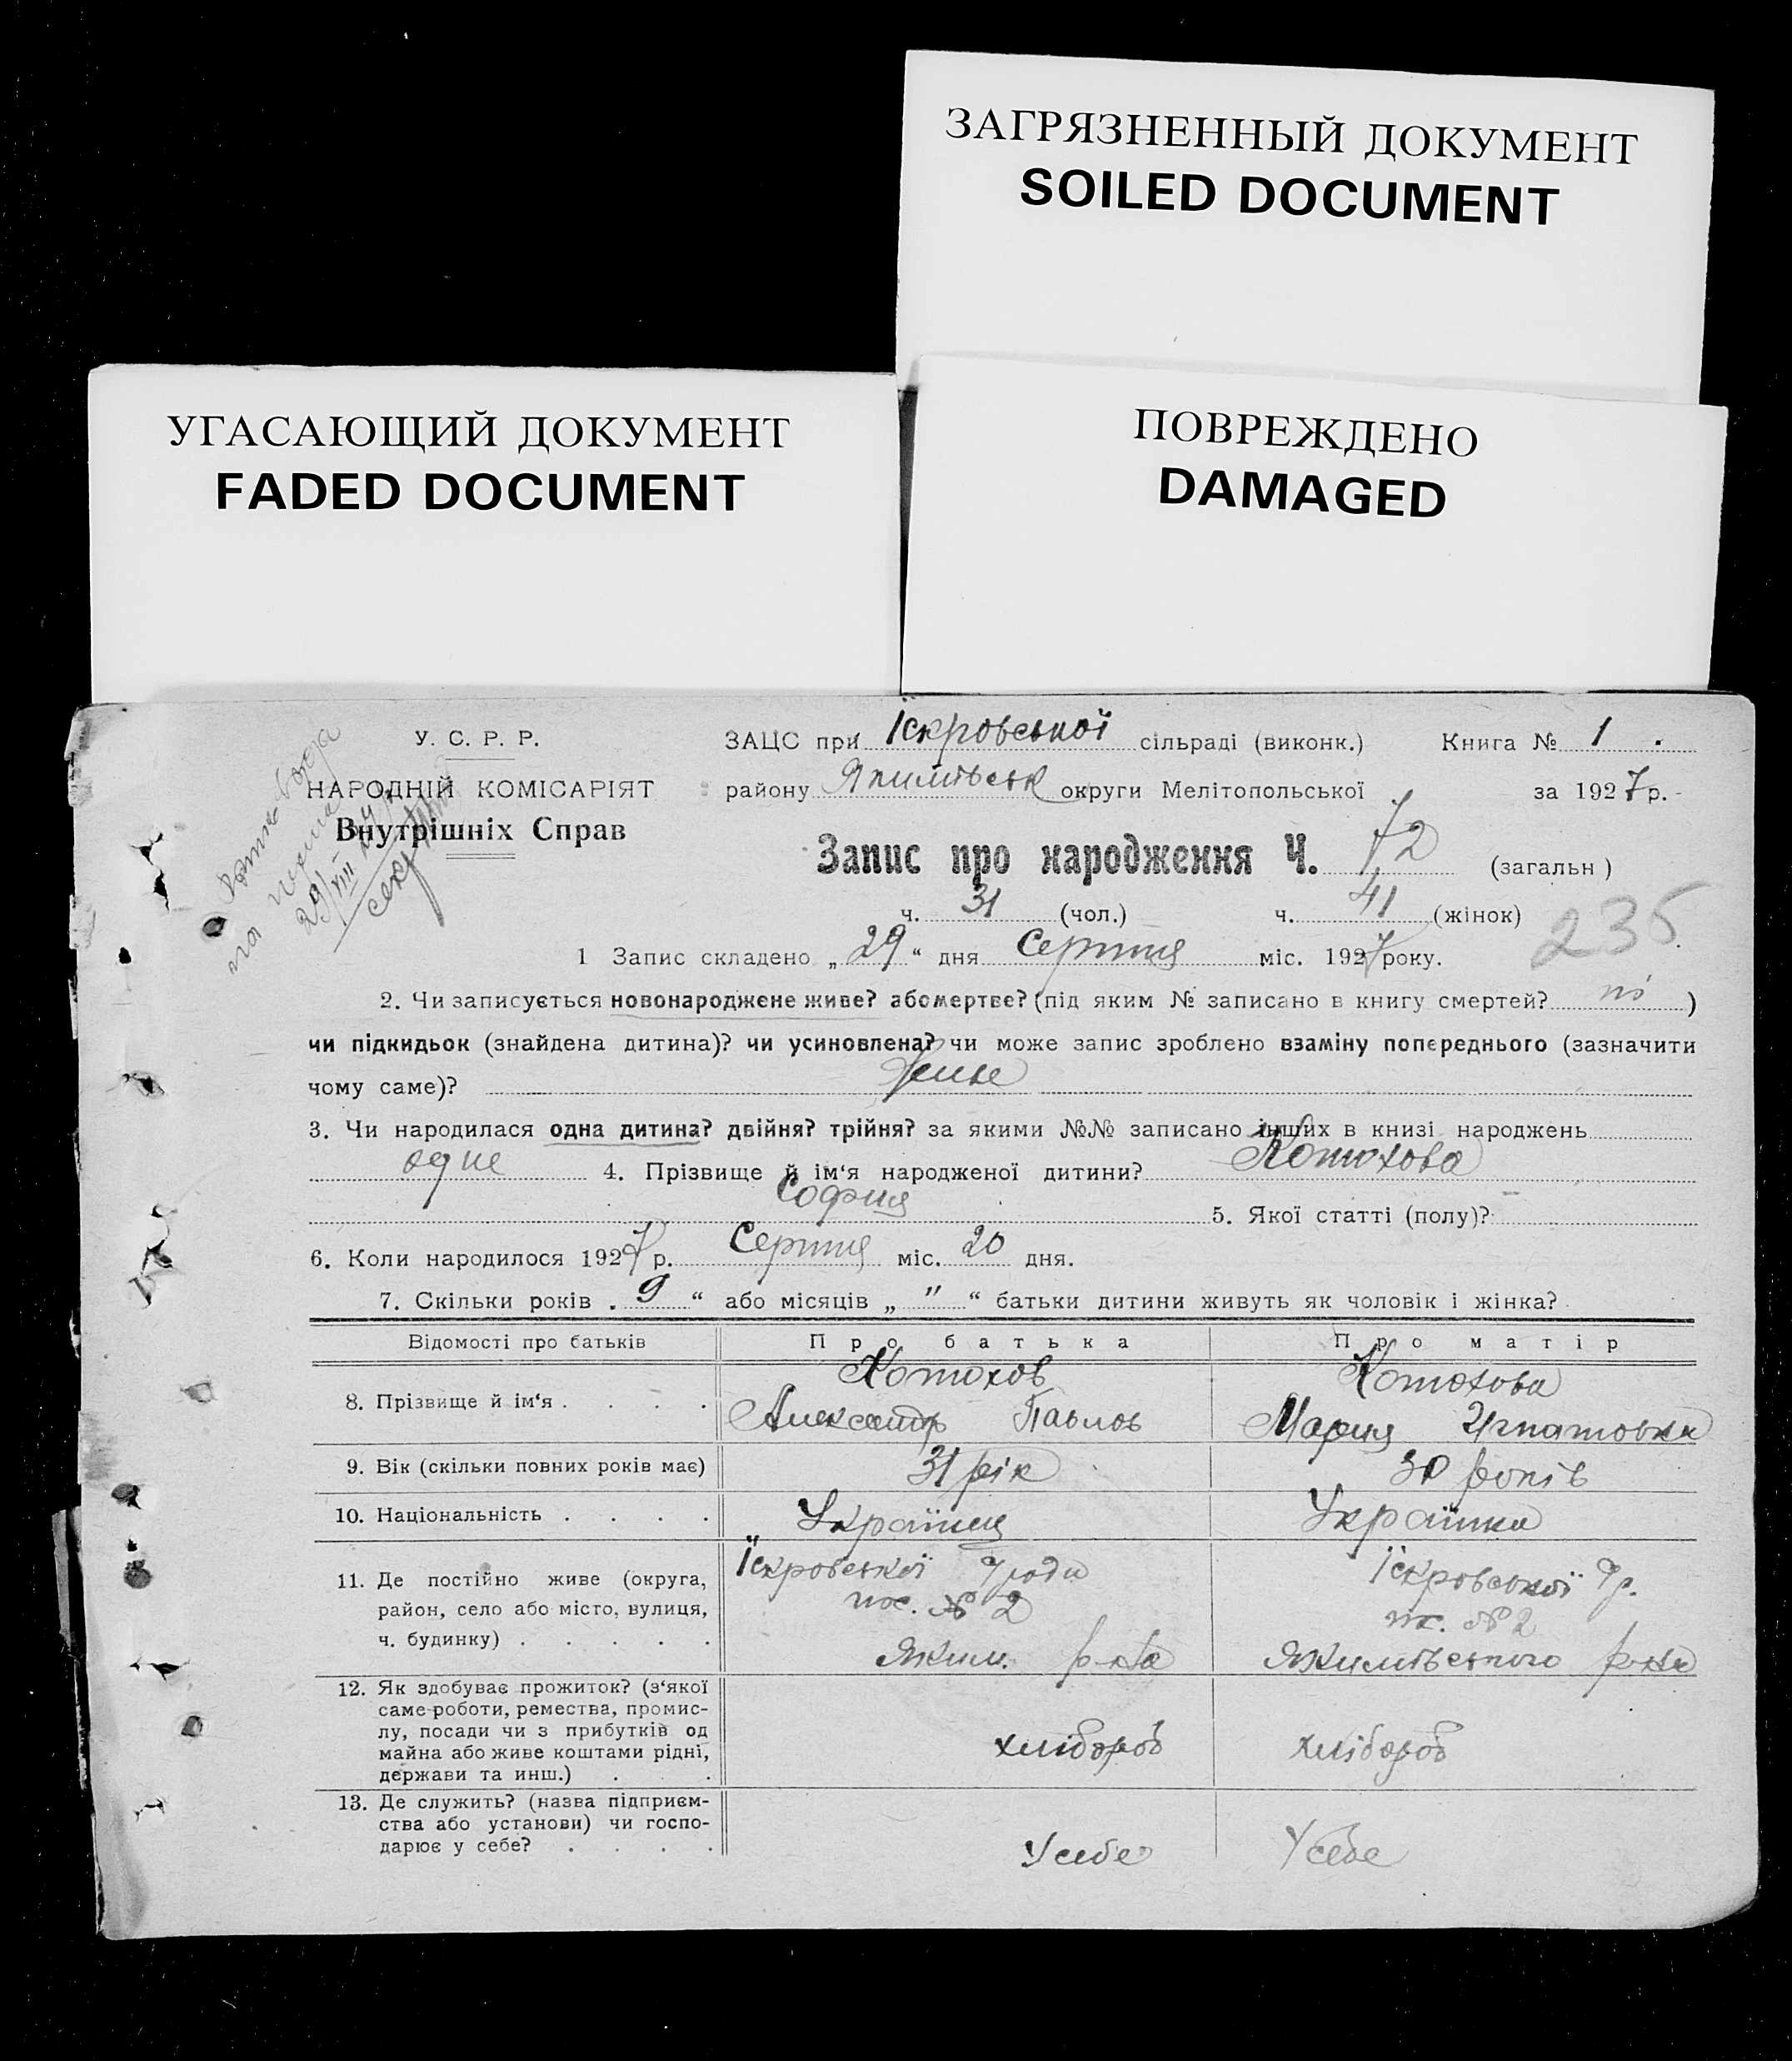 ЗАГРЯЗНЕННЫЙ ДОКУМЕНТ
SOILED DOCUMENT
УГАСАЮЩИЙ ДОКУМЕНТ
FADED DOCUMENT
ПОВРЕЖДЕНО
DAMAGED
У. С. Р. Р.
НАРОДНІЙ КОМІСАРІЯТ
Внутрішніх Справ
29/VIII
ЗАЦС при Іскровської сільраді (виконк.) Книга № 1.
району Якимівськ округи Мелітопольської за 1927 р.
Запис про народження Ч. 72 (загальн)
ч. 31 (чол.) ч. 41 (жінок)
235
1 Запис складено „29“ дня Серпня міс. 1927 року.
2. Чи записується новонароджене живе? або мертве? (під яким № записано в книгу смертей? ні)
чи підкидьок (знайдена дитина)? чи усиновлена? чи може запис зроблено взаміну попереднього (зазначити
чому саме)? Живе
3. Чи народилася одна дитина? двійня? трійня? за якими №№ записано інших в книзі народжень
одне 4. Прізвище й ім‘я народженої дитини? Котюхова
София 5. Якої статті (полу)?
6. Коли народилося 1927 р. Серпня міс. 20 дня.
7. Скільки років . 9 “ або місяців „ " “ батьки дитини живуть як чоловік і жінка?
Відомості про батьків Про батька Про матір
8. Прізвище й ім‘я . . . . Котюхов Котюхова
Александр Павлов Мария Игнатовна
9. Вік (скільки повних років має) 31 рік 30 років
10. Національність . . . . Українец Українка
11. Де постійно живе (округа, Іскровської Іскровської
район, село або місто, вулиця, пос. № 2 пос. № 2
ч. будинку) . . . . . Яким. р-на Якимівського р-на
12. Як здобуває прожиток? (з‘якої
саме роботи, ремества, промис-
лу, посади чи з прибутків од
майна або живе коштами рідні, хлібороб хлібороб
держави та инш.) . .
13. Де служить? (назва підприєм-
ства або установи) чи госпо-
дарює у себе? . . . . У себе У себе